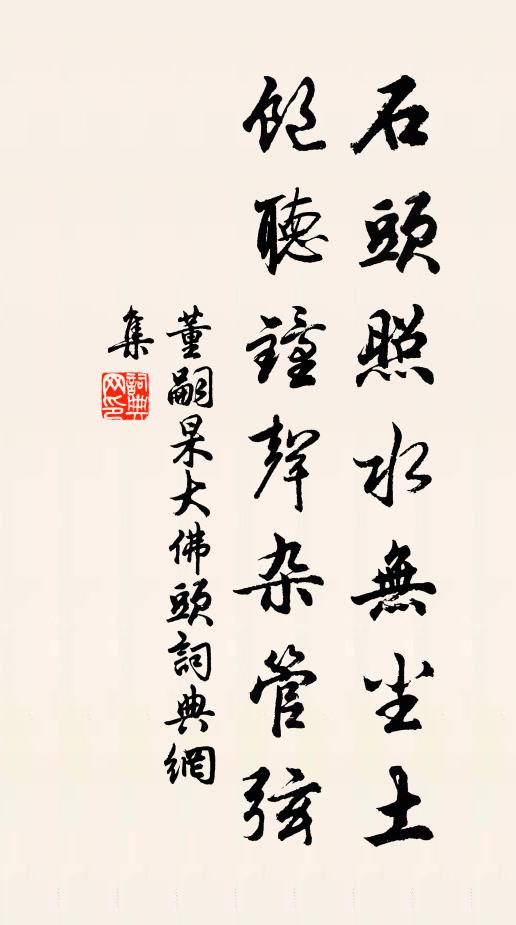 石頭照水無尘土
飽聽鐘聲杂管弦
董嗣杲大佛頭詞典網
集
詞典
网印